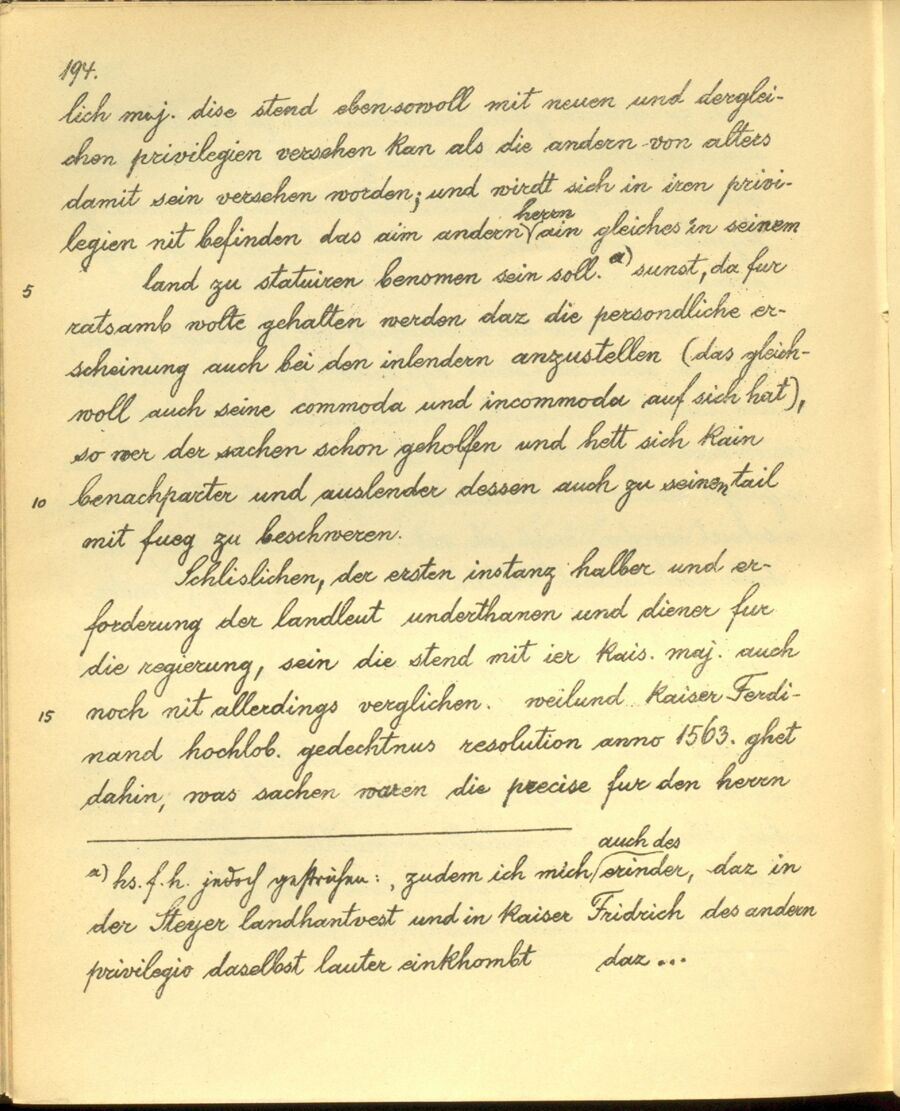 194.
lich maj. dise stend ebensowoll mit neuen und derglei-
chen privilegien versehen kan als die andern von alters
damit sein versehen worden; und wirdt sich in iren privi-
legien nit befinden das aim andern herrn ain gleiches in seinem
5 land zu statuiren benomen sein soll. a) sunst, da fur
ratsamb wolte gehalten werden daz die persondliche er-
scheinung auch bei den inlendern anzustellen (das gleich-
woll auch seine commoda und incommoda auf sich hat),
so wer der sachen schon geholfen und hett sich kain
10 benachparter und auslender dessen auch zu seinen tail
mit fueg zu beschweren.
Schlislichen, der ersten instanz halber und er-
forderung der landleut underthanen und diener fur
die regierung, sein die stend mit ier kais. maj. auch
15 noch nit allerdings verglichen. weilund kaiser Ferdi-
nand hochlob. gedechtnus resolution anno 1563. ghet
dahin, was sachen waren die precise fur den herrn
a) hs. f. h. jedoch gestrichen: , zudem ich mich auch des erinder, daz in
der Steyer landhantvest und in kaiser Fridrich des andern
privilegio daselbst lauter einkhombt daz ...